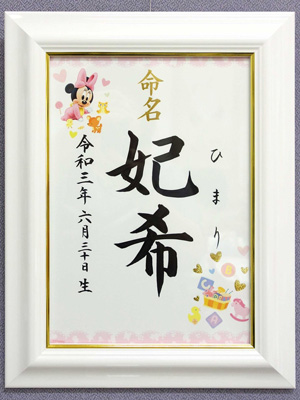 命名
ひまり
妃希
令和三年六月三十日生